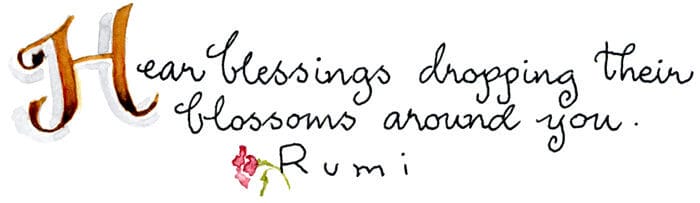 Hear blessings dropping their
blossoms around you.
Rumi